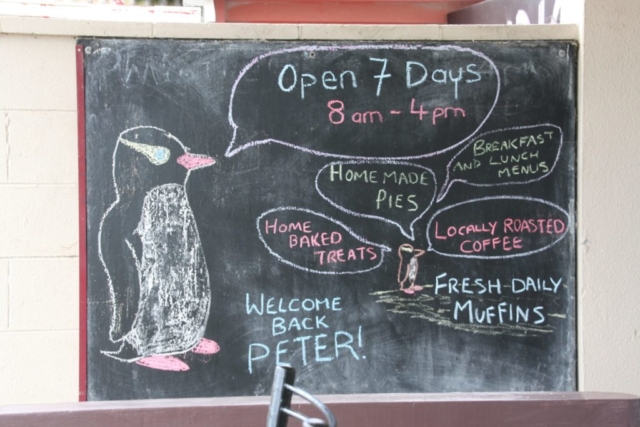 Open 7 Days
8am - 4pm
BREAKFAST
AND LUNCH
MENUS
HOMEMADE
PIES
HOME
BAKED
TREATS
LOCALLY ROASTED
COFFEE
FRESH DAILY
MUFFINS
WELCOME
BACK
PETER!